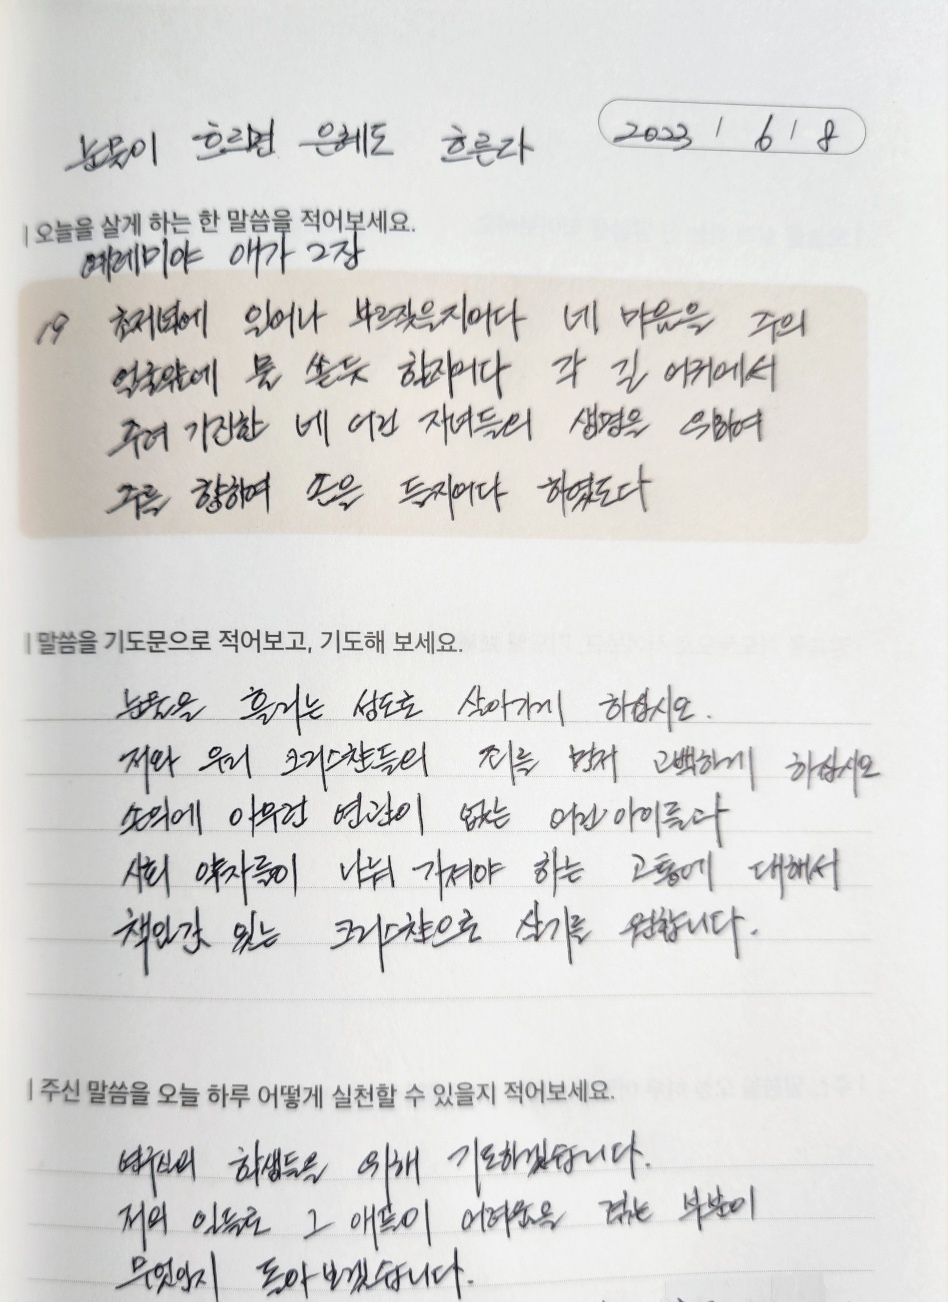 눈물이 흐르면 은혜도 흐른다
2023 / 6 / 8
오늘을 살게 하는 한 말씀을 적어보세요.
예레미야 애가 2장
19 초저녁에 일어나 부르짖을지어다 네 마음을 주의
얼굴앞에 물 쏟듯 할지어다 각 길 어귀에서
주려 기진한 네 어린 자녀들의 생명을 위하여
주를 향하여 손을 들지어다 하였도다
말씀을 기도문으로 적어보고, 기도해 보세요.
눈물을 흘리는 성도로 살아가게 하십시오.
저와 우리 크리스챤들의 죄를 먼저 고백하게 하십시오
손의에 아무런 연관이 없는 어린아이들과
사회 약자들이 나눠 가져야 하는 고통에 대해서
책임감 있는 크리스챤으로 살기를 원합니다.
주신 말씀을 오늘 하루 어떻게 실천할 수 있을지 적어보세요.
학생들을 위해 기도하겠습니다.
저의 일들로 그 애들이 어려움을 겪는 부분이
무엇인지 돌아보겠습니다.